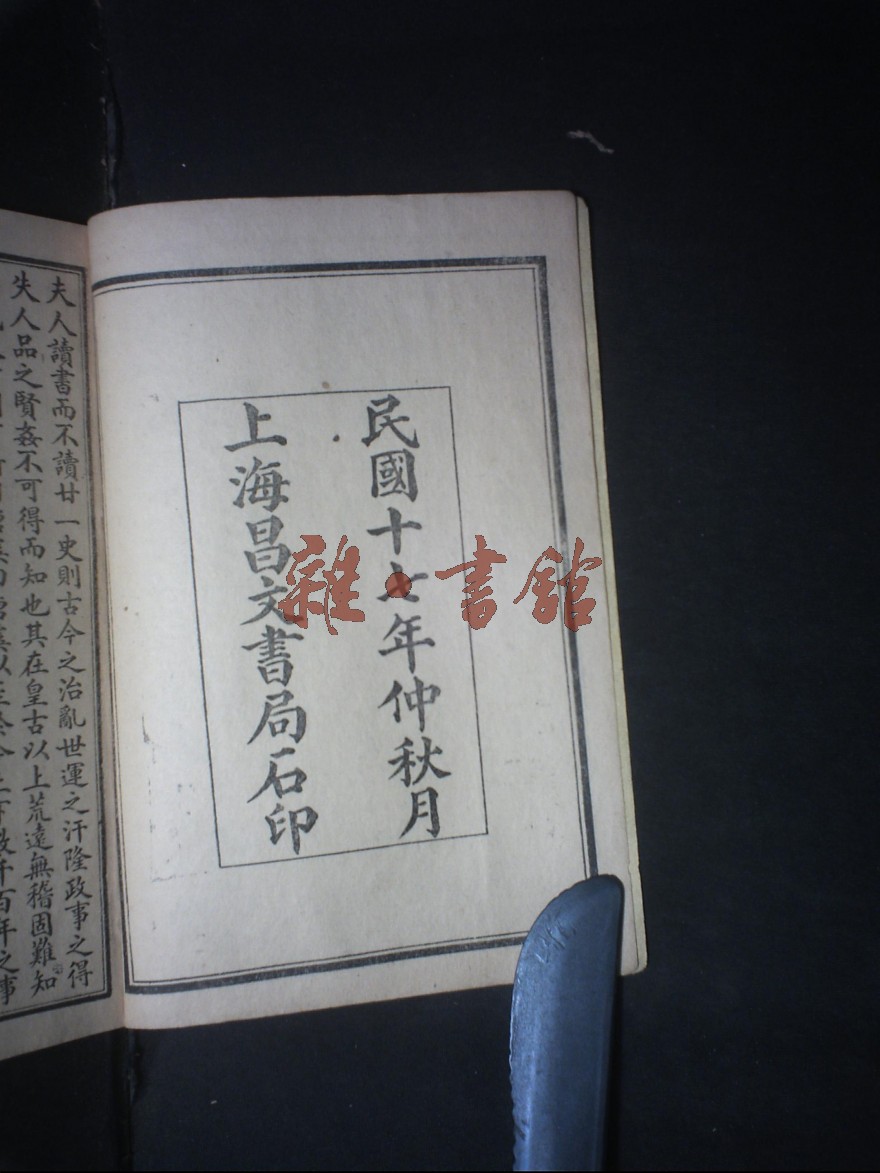 民國十七年仲秋月
上海昌文書局石印
雜·書館
夫人讀書而不讀廿一史則古今之治亂世運之汙隆政事之得
失人品之賢姦不可得而知也其在皇古以上荒遠無稽固難知